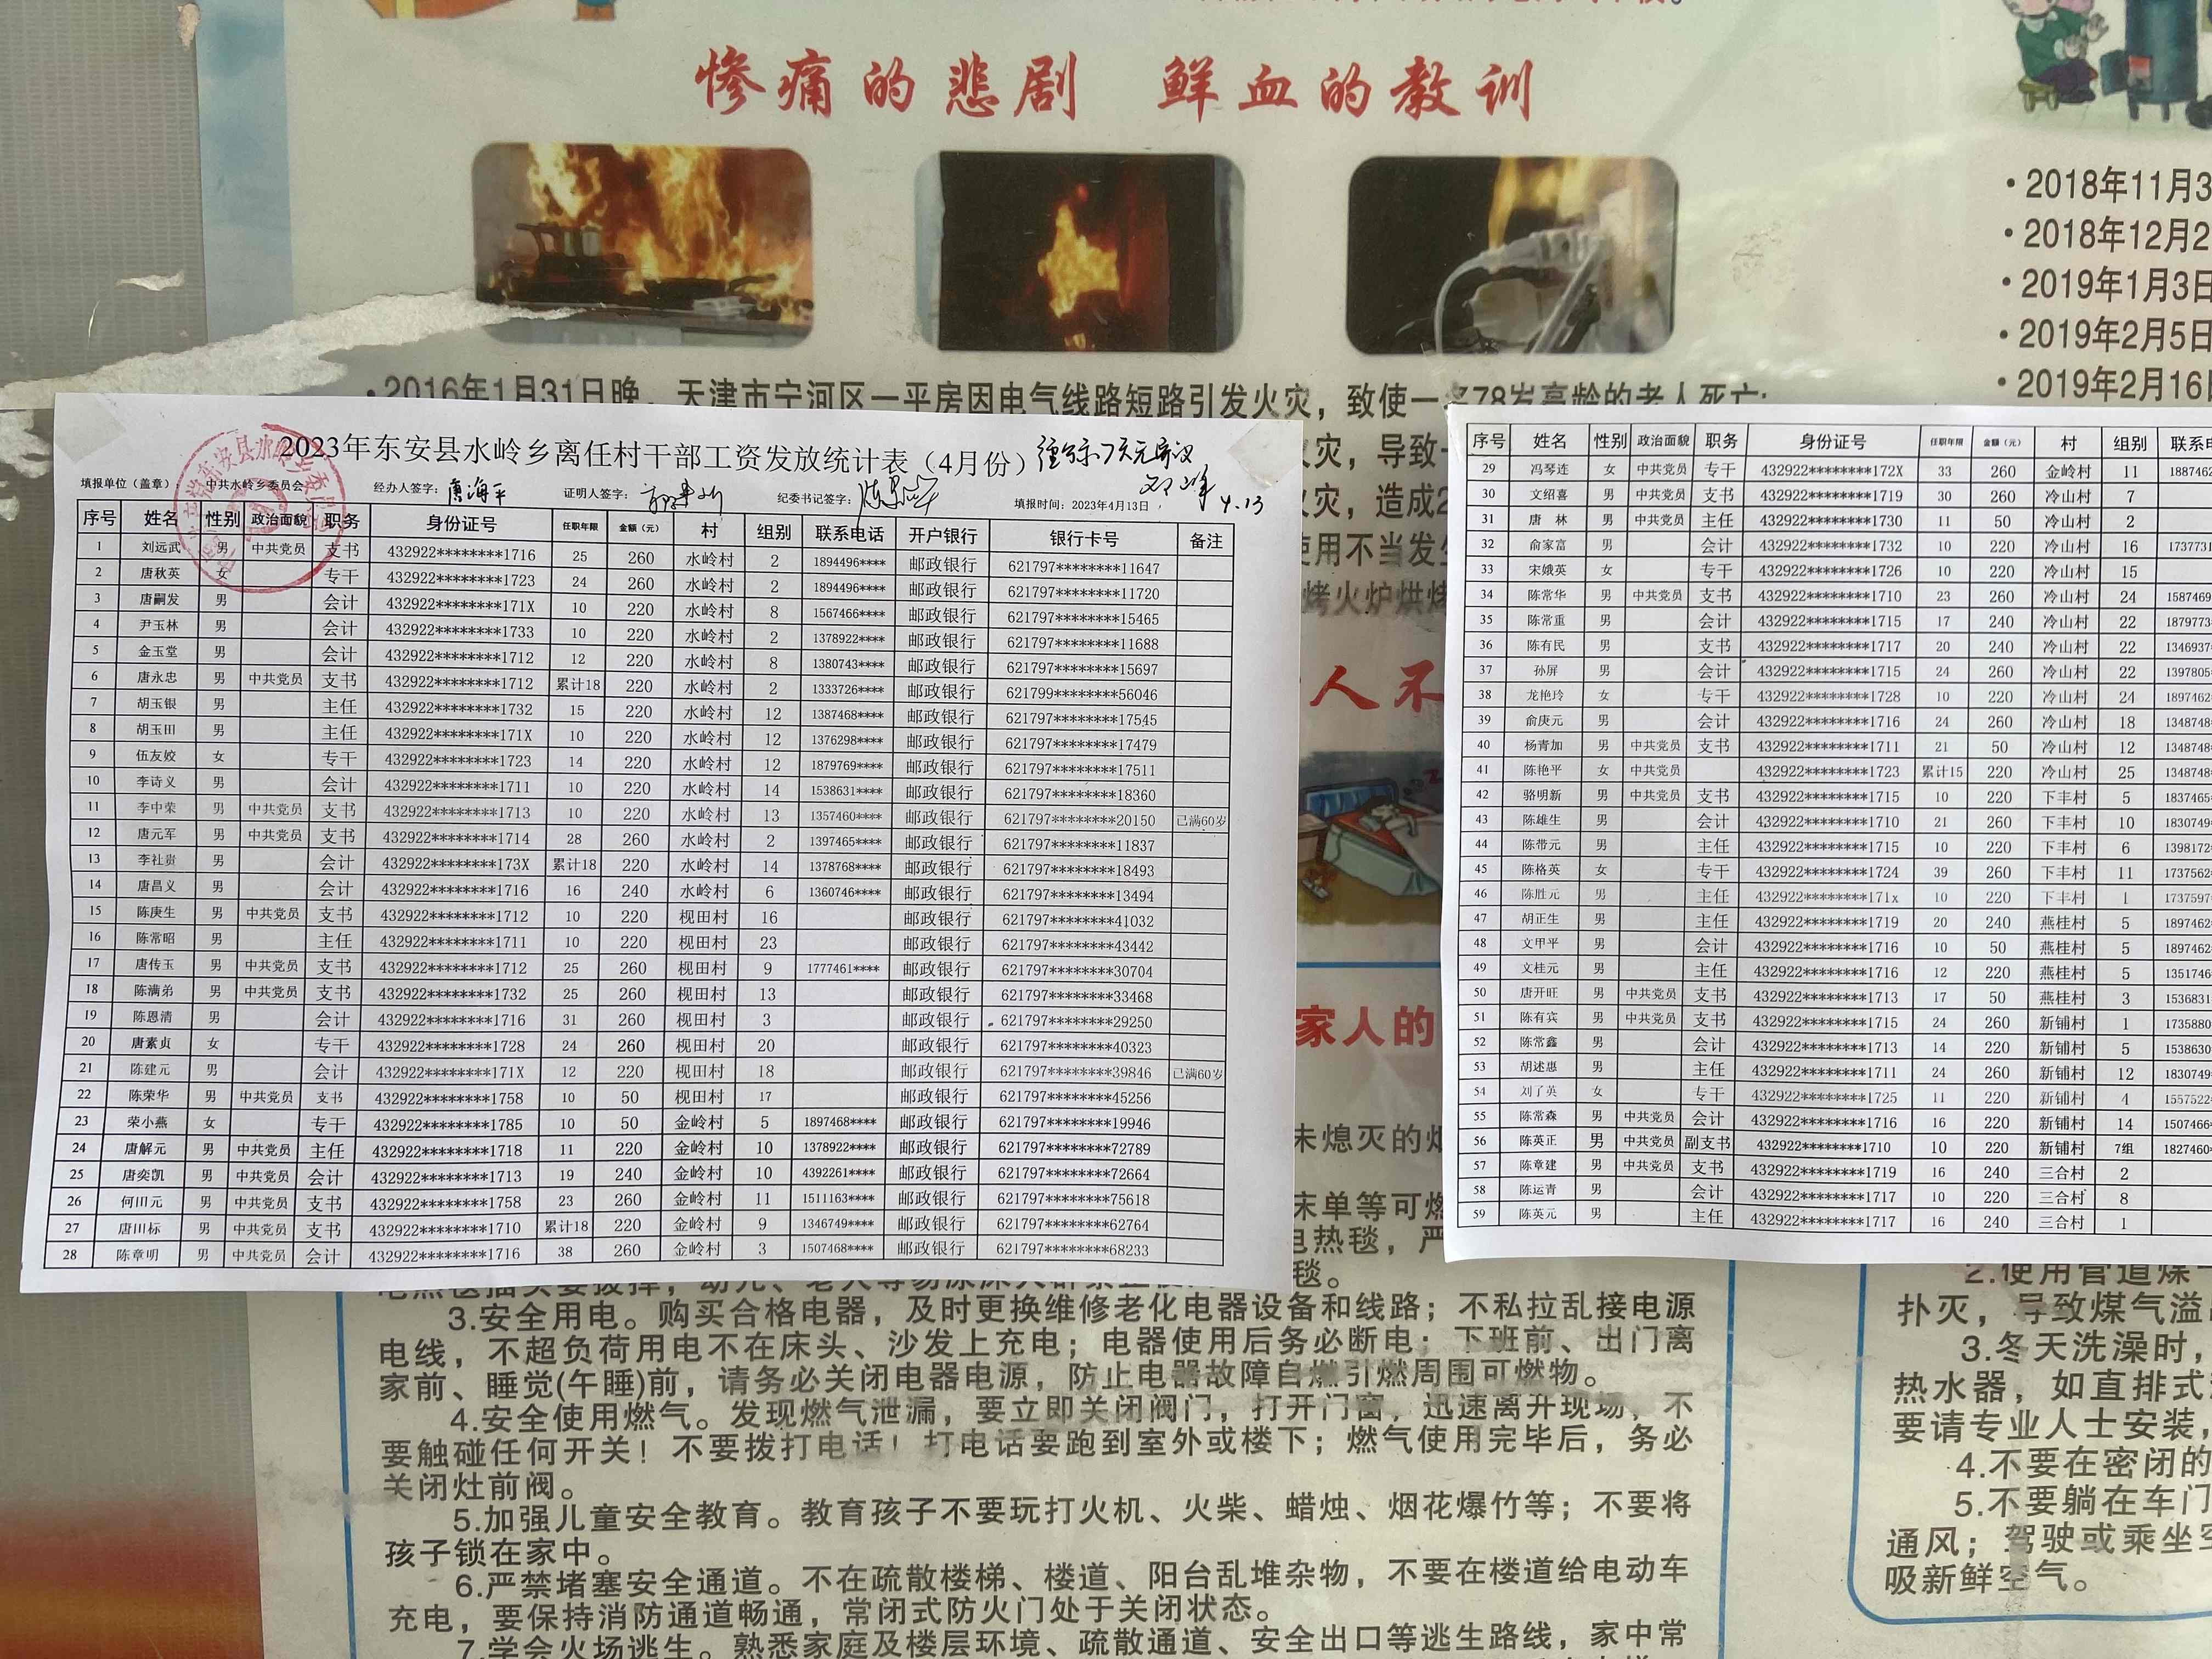 惨痛的悲剧 鲜血的教训
·2018年11月3
·2018年12月2
·2019年1月3日
·2019年2月5日
·2019年2月16日
·2016年1月31日晚，天津市宁河区一平房因电气线路短路引发火灾，致使一名78岁高龄的老人死亡；
火灾，导致
火灾，造成2
使用不当发生
烤火炉烘烤
人不
家人的
2023年东安县水岭乡离任村干部工资发放统计表（4月份）
经公示7天无异议
4.13
填报单位（盖章）： 中共水岭乡委员会 经办人签字：唐海平 证明人签字： 纪委书记签字： 填报时间：2023年4月13日
序号 姓名 性别 政治面貌 职务 身份证号 任职年限 金额（元） 村 组别 联系电话 开户银行 银行卡号 备注
1 刘远武 男 中共党员 支书 432922********1716 25 260 水岭村 2 1894496**** 邮政银行 621797********11647
2 唐秋英 女 专干 432922********1723 24 260 水岭村 2 1894496**** 邮政银行 621797********11720
3 唐嗣发 男 会计 432922********171X 10 220 水岭村 8 1567466**** 邮政银行 621797********15465
4 尹玉林 男 会计 432922********1733 10 220 水岭村 2 1378922**** 邮政银行 621797********11688
5 金玉堂 男 会计 432922********1712 12 220 水岭村 8 1380743**** 邮政银行 621797********15697
6 唐永忠 男 中共党员 支书 432922********1712 累计18 220 水岭村 2 1333726**** 邮政银行 621799********56046
7 胡玉银 男 主任 432922********1732 15 220 水岭村 12 1387468**** 邮政银行 621797********17545
8 胡玉田 男 主任 432922********171X 10 220 水岭村 12 1376298**** 邮政银行 621797********17479
9 伍友姣 女 专干 432922********1723 14 220 水岭村 12 1879769**** 邮政银行 621797********17511
10 李诗义 男 会计 432922********1711 10 220 水岭村 14 1538631**** 邮政银行 621797********18360
11 李中荣 男 中共党员 支书 432922********1713 10 220 水岭村 13 1357460**** 邮政银行 621797********20150 已满60岁
12 唐元军 男 中共党员 支书 432922********1714 28 260 水岭村 2 1397465**** 邮政银行 621797********11837
13 李社贵 男 会计 432922********173X 累计18 220 水岭村 14 1378768**** 邮政银行 621797********18493
14 唐昌义 男 会计 432922********1716 16 240 水岭村 6 1360746**** 邮政银行 621797********13494
15 陈庚生 男 中共党员 支书 432922********1712 10 220 枧田村 16 邮政银行 621797********41032
16 陈常昭 男 主任 432922********1711 10 220 枧田村 23 邮政银行 621797********43442
17 唐传玉 男 中共党员 支书 432922********1712 25 260 枧田村 9 1777461**** 邮政银行 621797********30704
18 陈满弟 男 中共党员 支书 432922********1732 25 260 枧田村 13 邮政银行 621797********33468
19 陈恩清 男 会计 432922********1716 31 260 枧田村 3 邮政银行 621797********29250
20 唐素贞 女 专干 432922********1728 24 260 枧田村 20 邮政银行 621797********40323
21 陈建元 男 会计 432922********171X 12 220 枧田村 18 邮政银行 621797********39846 已满60岁
22 陈荣华 男 中共党员 支书 432922********1758 10 50 枧田村 17 邮政银行 621797********45256
23 荣小燕 女 专干 432922********1785 10 50 金岭村 5 1897468**** 邮政银行 621797********19946
24 唐解元 男 中共党员 主任 432922********1718 11 220 金岭村 10 1378922**** 邮政银行 621797********72789
25 唐奕凯 男 中共党员 会计 432922********1713 19 240 金岭村 10 4392261**** 邮政银行 621797********72664
26 何川元 男 中共党员 支书 432922********1758 23 260 金岭村 11 1511163**** 邮政银行 621797********75618
27 唐川标 男 中共党员 支书 432922********1710 累计18 220 金岭村 9 1346749**** 邮政银行 621797********62764
28 陈章明 男 中共党员 会计 432922********1716 38 260 金岭村 3 1507468**** 邮政银行 621797********68233
序号 姓名 性别 政治面貌 职务 身份证号 任职年限 金额（元） 村 组别 联系电
29 冯琴连 女 中共党员 专干 432922********172X 33 260 金岭村 11 1887462
30 文绍喜 男 中共党员 支书 432922********1719 30 260 冷山村 7
31 唐 林 男 中共党员 主任 432922********1730 11 50 冷山村 2
32 俞家富 男 会计 432922********1732 10 220 冷山村 16 1737731
33 宋娥英 女 专干 432922********1726 10 220 冷山村 15
34 陈常华 男 中共党员 支书 432922********1710 23 260 冷山村 24 1587469
35 陈常重 男 会计 432922********1715 17 240 冷山村 22 1879773
36 陈有民 男 支书 432922********1717 20 240 冷山村 22 1346937
37 孙屏 男 会计 432922********1715 24 260 冷山村 22 1397805
38 龙艳玲 女 专干 432922********1728 10 220 冷山村 24 1897462
39 俞庚元 男 会计 432922********1716 24 260 冷山村 18 1348748
40 杨青加 男 中共党员 支书 432922********1711 21 50 冷山村 12 1348748
41 陈艳平 女 中共党员 432922********1723 累计15 220 冷山村 25 1348748
42 骆明新 男 中共党员 支书 432922********1715 10 220 下丰村 5 1837465
43 陈雄生 男 会计 432922********1710 21 260 下丰村 10 1830749
44 陈带元 男 主任 432922********1715 10 220 下丰村 6 1398172
45 陈格英 女 专干 432922********1724 39 260 下丰村 11 1737562
46 陈胜元 男 主任 432922********171x 10 220 下丰村 1 1737597
47 胡正生 男 主任 432922********1719 20 240 燕桂村 5 1897462
48 文甲平 男 会计 432922********1716 10 50 燕桂村 5 1897462
49 文桂元 男 主任 432922********1716 12 220 燕桂村 5 1351746
50 唐开旺 男 中共党员 支书 432922********1713 17 50 燕桂村 3 1536831
51 陈有宾 男 中共党员 支书 432922********1715 24 260 新铺村 1 1735880
52 陈常鑫 男 会计 432922********1713 14 220 新铺村 5 1538630
53 胡述惠 男 主任 432922********1711 24 260 新铺村 12 1830749
54 刘了英 女 专干 432922********1725 11 220 新铺村 4 1557522
55 陈常森 男 中共党员 会计 432922********1716 16 220 新铺村 14 1507466
56 陈英正 男 中共党员 副支书 432922********1710 10 220 新铺村 7组 1827460
57 陈章建 男 中共党员 支书 432922********1719 16 240 三合村 2
58 陈运青 男 会计 432922********1717 10 220 三合村 8
59 陈英元 男 主任 432922********1717 16 240 三合村 1
未熄灭的烟
床单等可燃
电热毯，严
毯。
3.安全用电。购买合格电器，及时更换维修老化电器设备和线路；不私拉乱接电源
电线，不超负荷用电不在床头、沙发上充电；电器使用后务必断电；下班前、出门离
家前、睡觉(午睡)前，请务必关闭电器电源，防止电器故障自燃引燃周围可燃物。
4.安全使用燃气。发现燃气泄漏，要立即关闭阀门，打开门窗，迅速离开现场，不
要触碰任何开关！不要拨打电话！打电话要跑到室外或楼下；燃气使用完毕后，务必
关闭灶前阀。
5.加强儿童安全教育。教育孩子不要玩打火机、火柴、蜡烛、烟花爆竹等；不要将
孩子锁在家中。
6.严禁堵塞安全通道。不在疏散楼梯、楼道、阳台乱堆杂物，不要在楼道给电动车
充电，要保持消防通道畅通，常闭式防火门处于关闭状态。
7.学会火场逃生。熟悉家庭及楼层环境、疏散通道、安全出口等逃生路线，家中常
2.使用管道煤
扑灭，导致煤气溢
3.冬天洗澡时，
热水器，如直排式
要请专业人士安装，
4.不要在密闭的
5.不要躺在车门
通风；驾驶或乘坐空
吸新鲜空气。